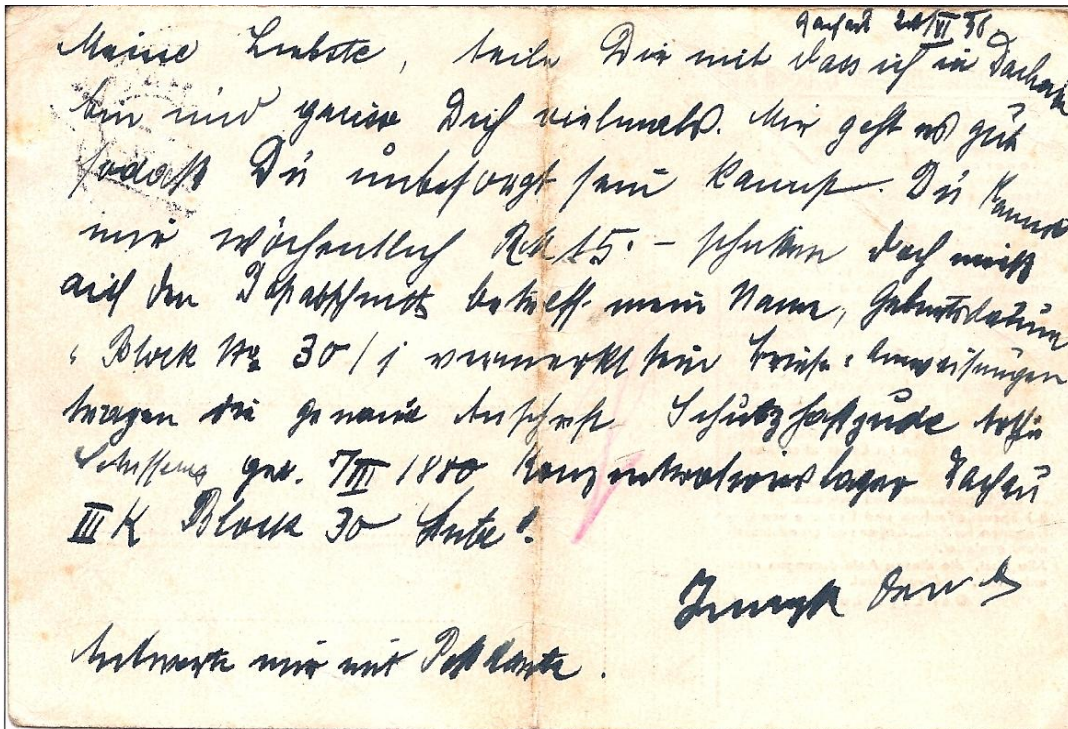 Dachau 24/VI 38
Meine Liebste, teile Dir mit dass ich in Dachau
bin und Dich vielmals. Mir geht es gut
sodaß Du unbesorgt sein kannst. Du kannst
mir wöchentlich RM 15.- schicken doch muß
auf den betreff. mein Name, Geburtsdatum
Block No 30/ vermerkt sein Briefe Anweisungen
tragen die genaue Anschrift Schutzhaftjude
geb. 7/III 1880 Konzentrationslager Dachau
III K Block 30 Stube
Antworte mir mit Postkarte.